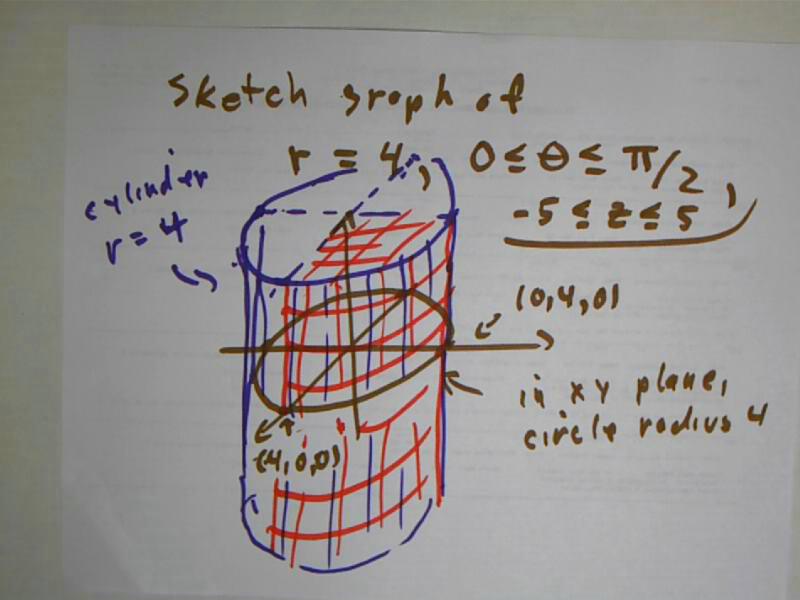 Sketch graph of
r = 4, 0 ≤ θ ≤ π/2,
-5 ≤ z ≤ 5
cylinder
r = 4
(0,4,0)
in xy plane,
circle radius 4
(4,0,0)